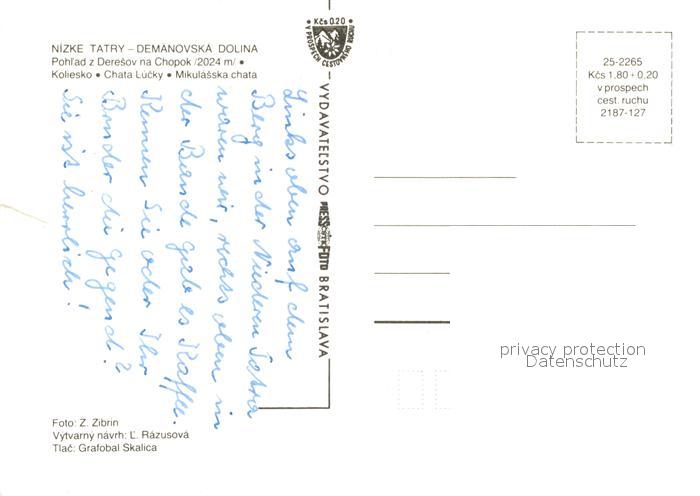 NÍZKE TATRY – DEMÄNOVSKÁ DOLINA
Pohľad z Derešov na Chopok /2024 m/ •
Koliesko • Chata Lúčky • Mikulášska chata
Links oben auf dem
Berg in der Niederen Tatra
waren wir, rechts oben in
der Baude gab es Kaffee.
Kennen Sie oder Ihr
Bruder die Gegend?
Sie ist herrlich!
Foto: Z. Zibrin
Výtvarný návrh: Ľ. Rázusová
Tlač: Grafobal Skalica
• Kčs 0.20 •
V PROSPECH CESTOVNÉHO RUCHU
VYDAVATEĽSTVO
PRESSFOTO
BRATISLAVA
25-2265
Kčs 1,80 + 0,20
v prospech
cest. ruchu
2187-127
privacy protection
Datenschutz